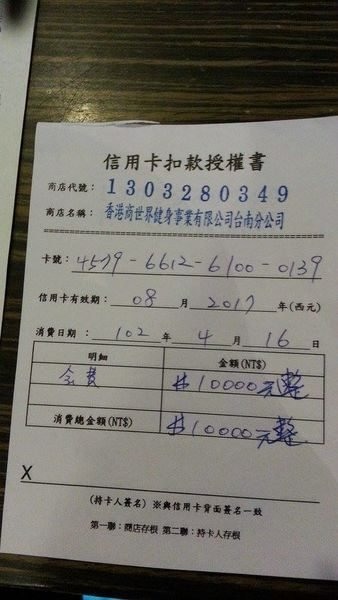 信用卡扣款授權書
商店代號：1303280349
商店名稱：香港商世界健身事業有限公司台南分公司
卡號：4579-6612-6100-0139
信用卡有效期：08月2017年(西元)
消費日期：102年4月16日
明細 金額(NT$)
会費 $10000元整
消費總金額(NT$) $10000元整
X
(持卡人簽名) ※與信用卡背面簽名一致
第一聯：商店存根 第二聯：持卡人存根